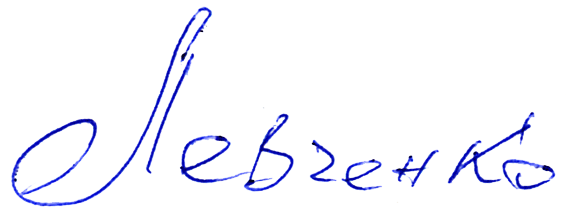 Левченко